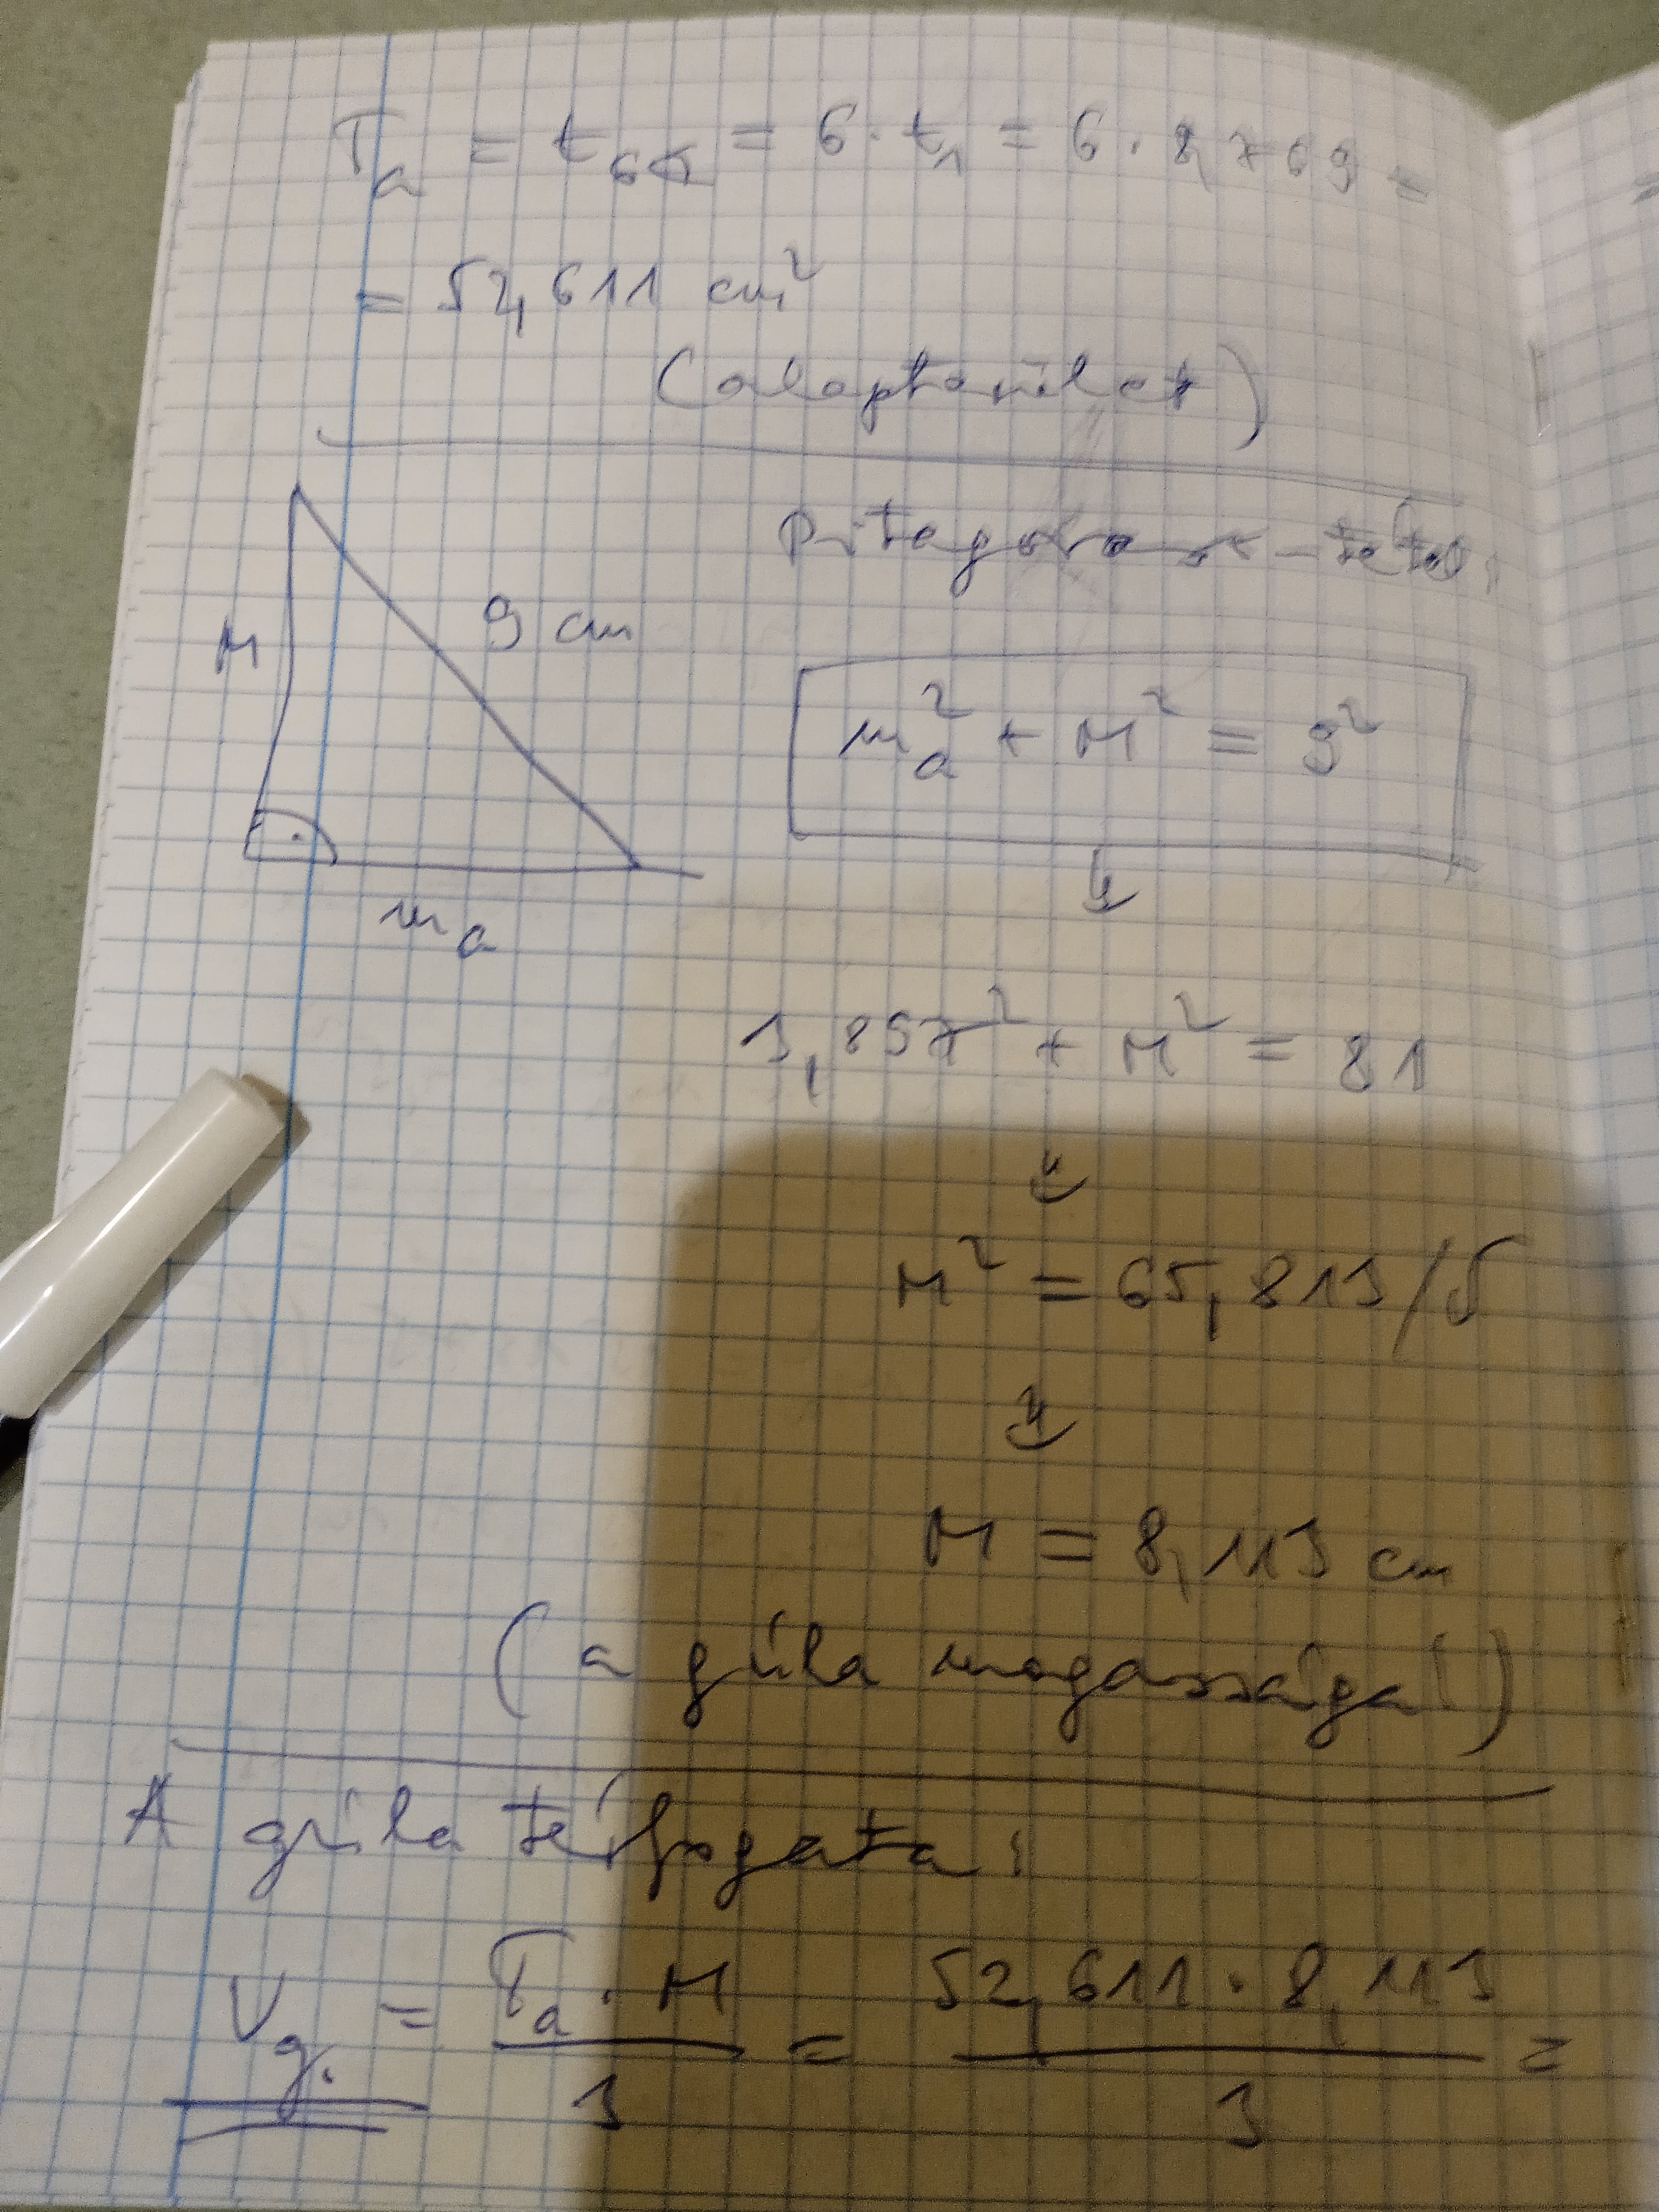 T_a = t_6△ = 6 · t_1 = 6 · 8,769 =
= 52,611 cm²
(alapterület)
Pitagorasz-tétel:
M
9 cm
m_a² + M² = 9²
m_a
3,897² + M² = 81
M² = 65,813 /√
M = 8,113 cm
(a gúla magassága!)
A gúla térfogata:
V_g. = T_a · M / 3 = 52,611 · 8,113 / 3 =